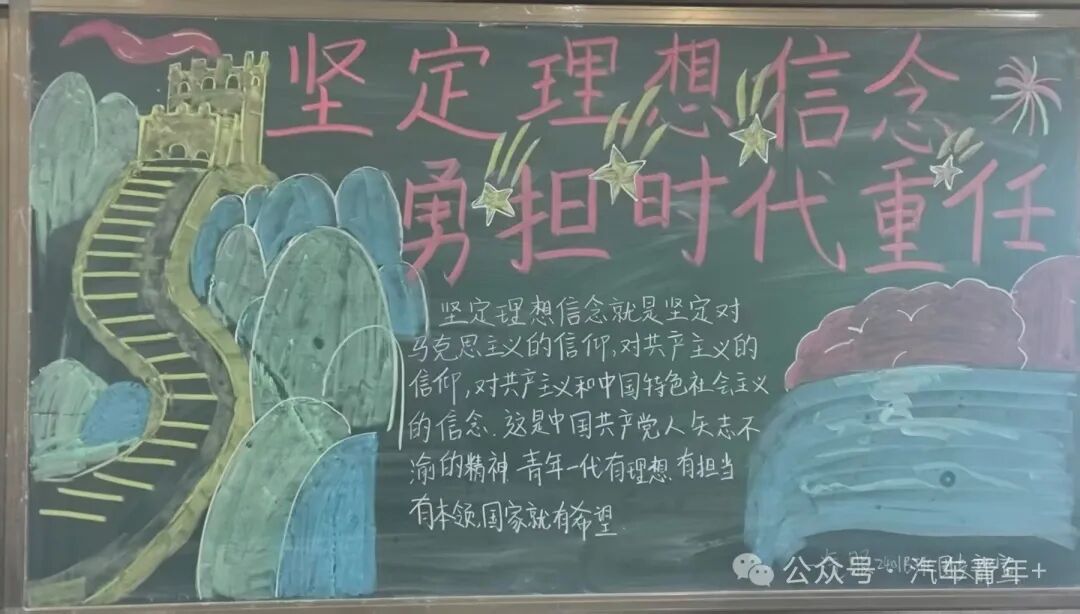 坚定理想信念
勇担时代重任
坚定理想信念就是坚定对
马克思主义的信仰,对共产主义的
信仰,对共产主义和中国特色社会主义
的信念.这是中国共产党人矢志不
渝的精神 青年一代有理想 有担当
有本领,国家就有希望.
公众号·汽车青年+